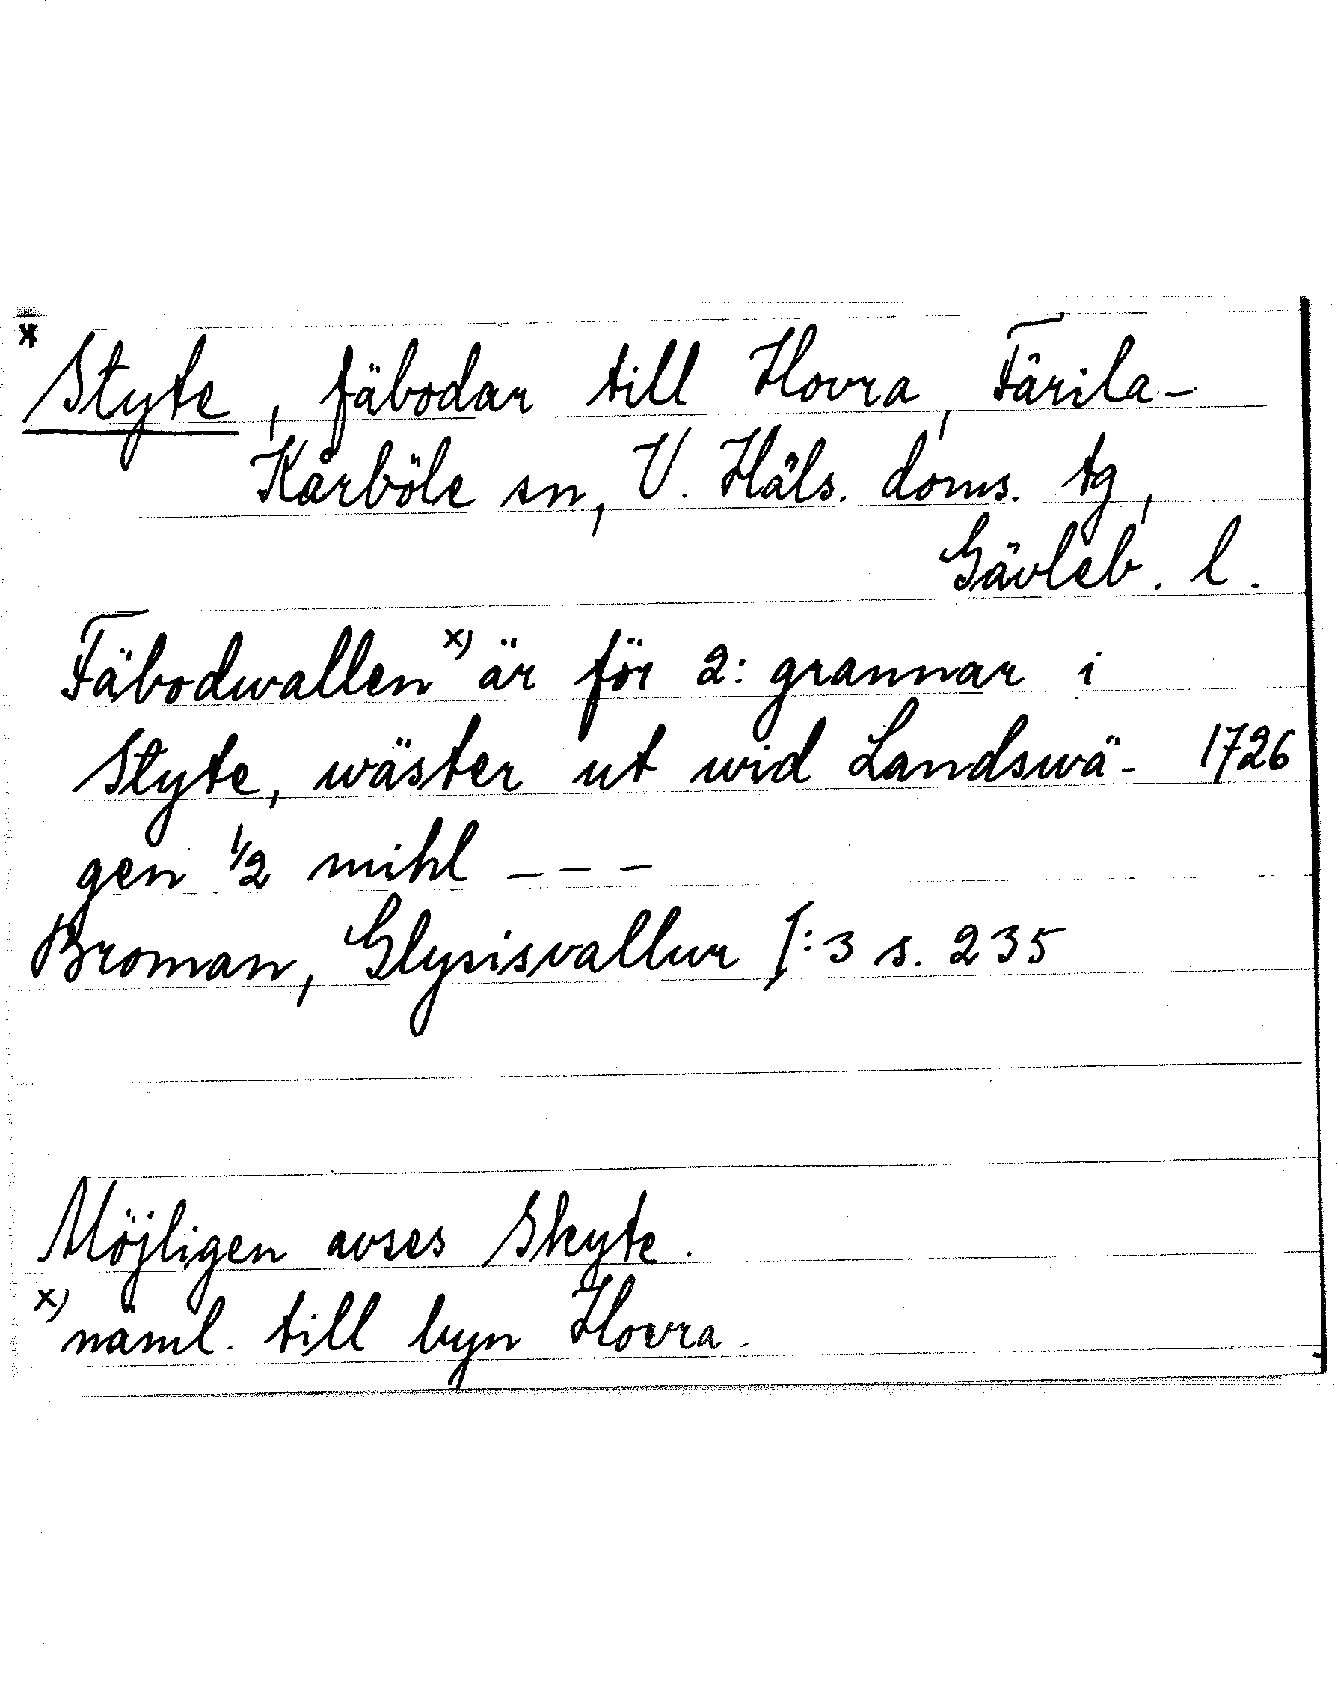 *
Styte, fäbodar till Hovra, Färila-
Kårböle sn, V. Häls. doms. tg,
Gävleb. l.
Fäbodwallen x) är för 2: grannar i
Styte, wäster ut wid Landswä- 1726
gen 1/2 mihl – – –
Broman, Glysisvallur I:3 s. 235
Möjligen avses Skyte.
x) näml. till byn Hovra.